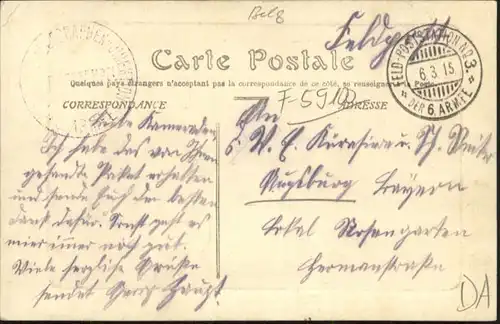 Belg
Feldpost
Carte Postale
Quelques pays étrangers n'acceptant pas la correspondance de ce côté, se renseigner
FELD-POSTSTATION NR. 3
6.3.15
* DER 6. ARMEE *
CORRESPONDANCE
ADRESSE
F-5910
Liebe Kameraden,
Ich habe das von Ihnen
gesandte Paket erhalten
und sende Euch den besten
Dank dafür. Sonst geht es
mier immer noch gut.
Viele herzliche Grüße
sendet Georg Haupt
An
d. V. E. Kürassire u. Sch. Reiter
Augsburg Bayern
Lokal Rosengarten
Hermanstraße
DA